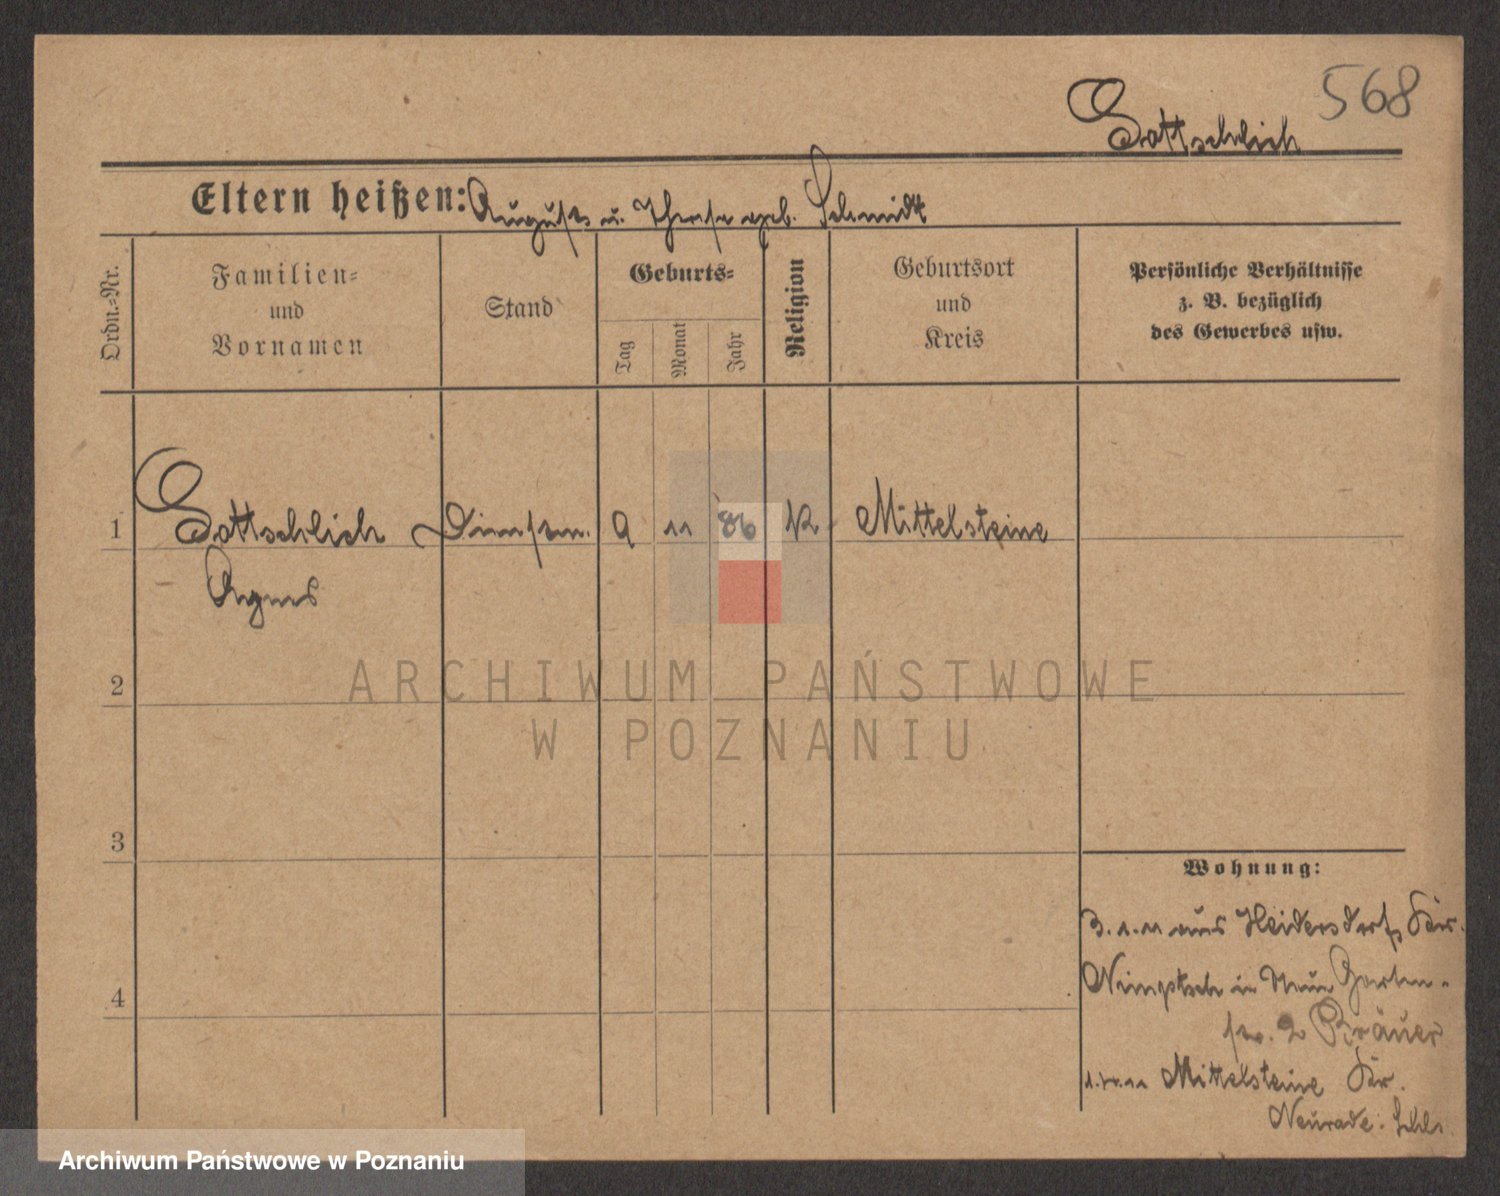 568
Gottschlich
Eltern heißen: August u. Therese geb. Schmidt
Ordn.=Nr.
Familien=
und
Vornamen
Stand
Geburts=
Tag
Monat
Jahr
Religion
Geburtsort
und
Kreis
Persönliche Verhältnisse
z. B. bezüglich
des Gewerbes usw.
1 Gottschlich 9 11 86 K Mittelsteine
Agnes
2
3
4
ARCHIWUM PAŃSTWOWE
W POZNANIU
Wohnung:
3.1.11 aus Heidersdorf, Kr.
Nimptsch in Neue Garten-
str. 2 Bräuer
Mittelsteine Kr.
Neurode. Schles.
Archiwum Państwowe w Poznaniu